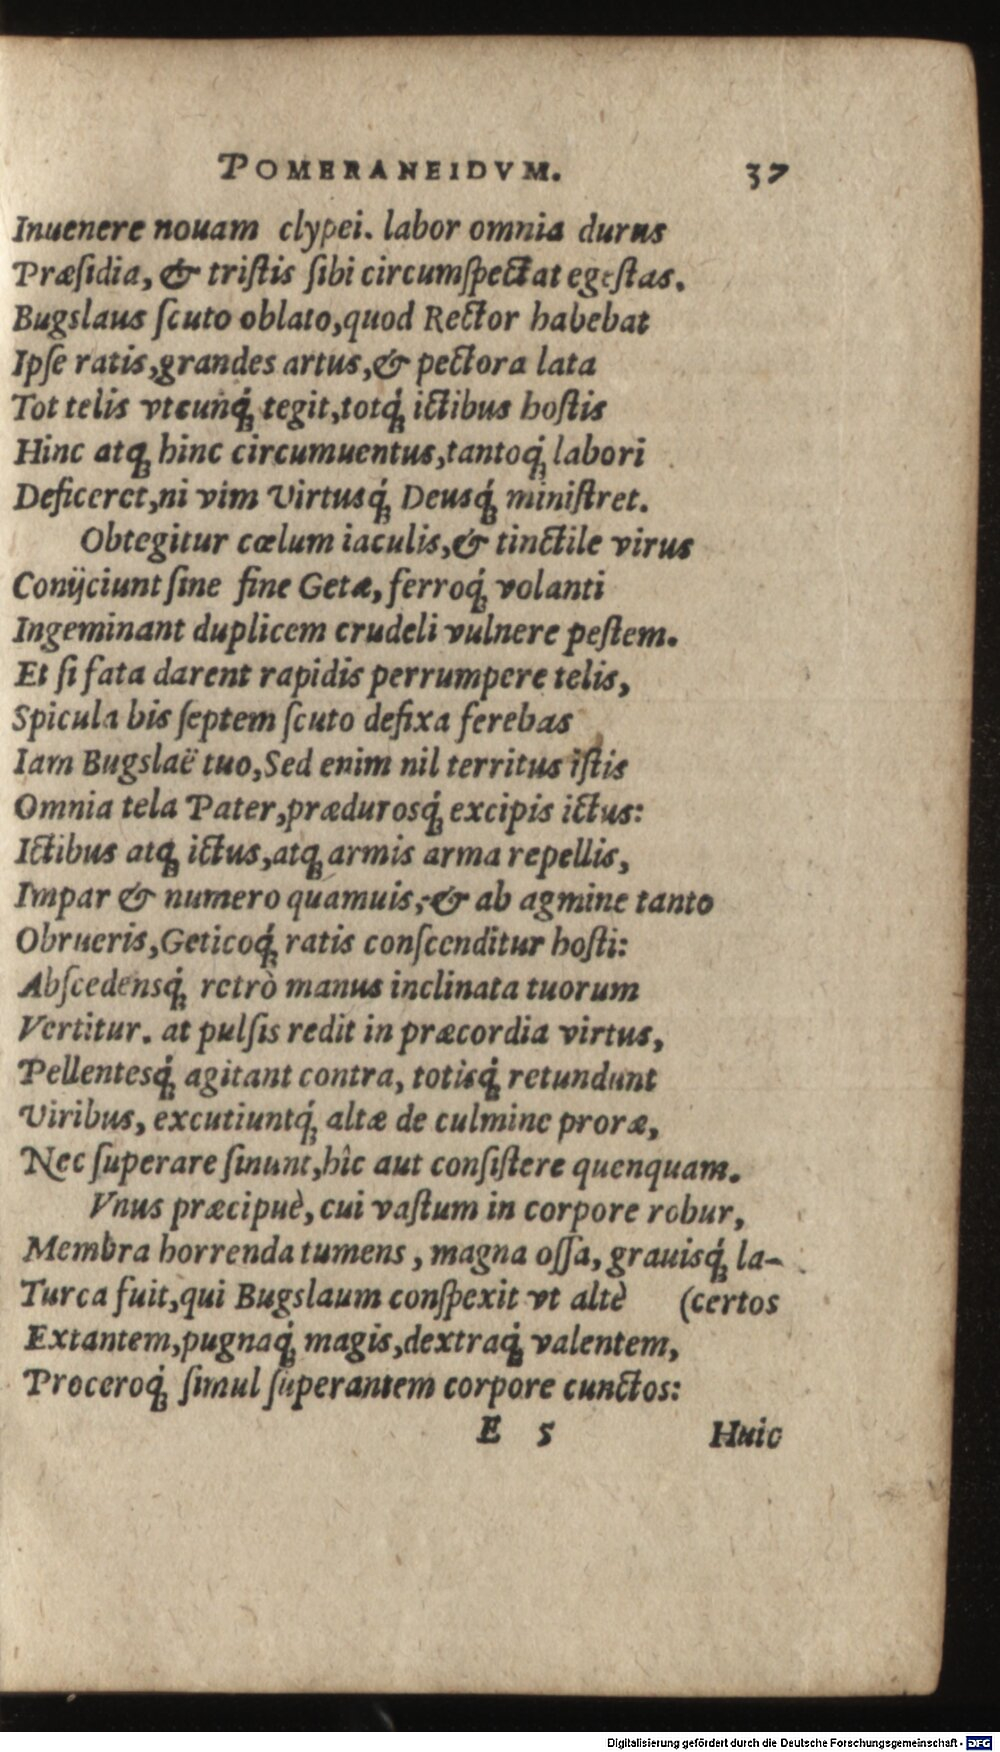 POMERANEIDVM. 37
Inuenere nouam clypei. labor omnia durus
Præſidia, & triſtis ſibi circumſpectat egeſtas.
Bugslaus ſcuto oblato, quod Rector habebat
Ipſe ratis, grandes artus, & pectora lata
Tot telis vtcunq́; tegit, totq́; ictibus hoſtis
Hinc atq; hinc circumuentus, tantoq́; labori
Deficeret, ni vim Virtusq́; Deusq́; miniſtret.
Obtegitur cœlum iaculis, & tinctile virus
Conijciunt ſine fine Getæ, ferroq́; volanti
Ingeminant duplicem crudeli vulnere peſtem.
Et ſi fata darent rapidis perrumpere telis,
Spicula bis ſeptem ſcuto defixa ferebas
Iam Bugslaë tuo, Sed enim nil territus iſtis
Omnia tela Pater, prædurosq́; excipis ictus:
Ictibus atq; ictus, atq; armis arma repellis,
Impar & numero quamuis, & ab agmine tanto
Obrueris, Geticoq́; ratis conſcenditur hoſti:
Abſcedensq́; retrò manus inclinata tuorum
Vertitur. at pulſis redit in præcordia virtus,
Pellentesq́; agitant contra, totisq́; retundunt
Viribus, excutiuntq́; altæ de culmine proræ,
Nec ſuperare ſinunt, hîc aut conſiſtere quenquam.
Vnus præcipuè, cui vaſtum in corpore robur,
Membra horrenda tumens, magna oſſa, grauisq́; la-
Turca fuit, qui Bugslaum conſpexit vt altè (certos
Extantem, pugnaq́; magis, dextraq́; valentem,
Proceroq́; ſimul ſuperantem corpore cunctos:
E 5 Huic
Digitalisierung gefördert durch die Deutsche Forschungsgemeinschaft - DFG